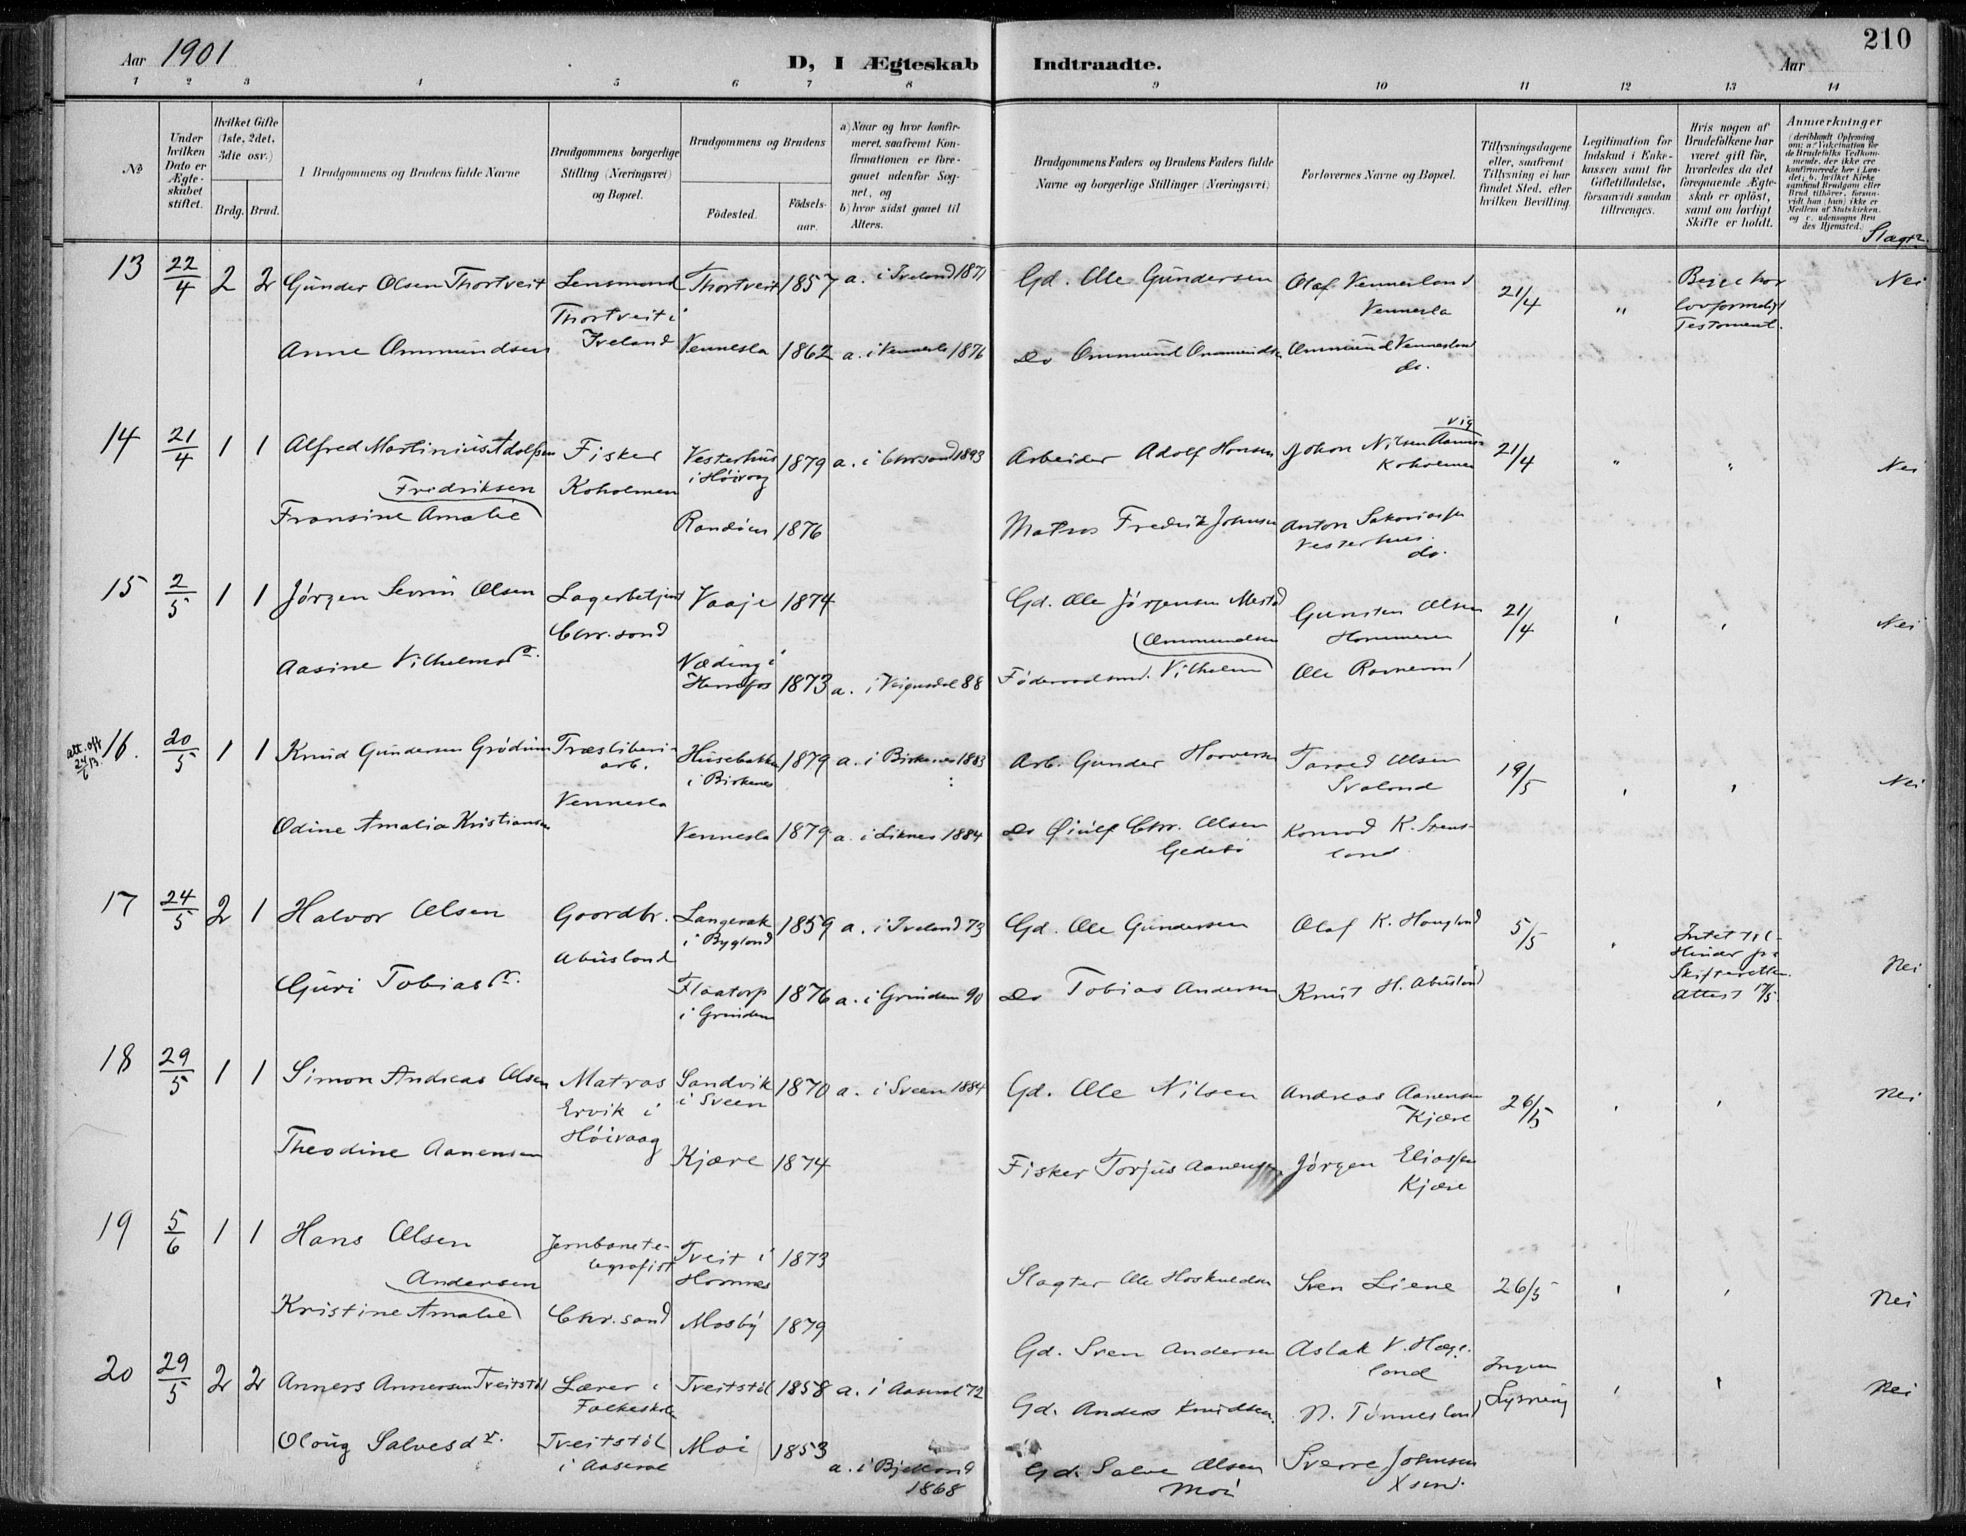 Aar 1901
D, I Ægteskab Indtraadte.
Aar
210
1 2 3 4 5 6 7 8 9 10 11 12 13 14
No
Under hvilken Dato er Ægteskabet stiftet.
Hvilket Gifte (1ste, 2det, 3die osv.)
Brdg. Brud.
1 Brudgommens og Brudens fulde Navne
Brudgommens borgerlige Stilling (Næringsvei) og Bopæl.
Brudgommens og Brudens
Fødested.
Fødselsaar.
a) Naar og hvor konfirmeret, saafremt Konfirmationen er foregaaet udenfor Sognet, og
b) hvor sidst gaaet til Alters.
Brudgommens Faders og Brudens Faders fulde Navne og borgerlige Stillinger (Næringsvei)
Forlovernes Navne og Bopæl.
Tillysningsdagene eller, saafremt Tillysning ei har fundet Sted, efter hvilken Bevilling.
Legitimation for Indskud i Enkekassen samt for Giftetilladelse, forsaavidt saadan tiltrænges.
Hvis nogen af Brudefolkene har været gift før, hvorledes da det foregaaende Ægteskab er opløst, samt om lovligt Skifte er holdt.
Anmærkninger
Slægt.
13 22/4 2 2 Gunder Olsen Thortveit Lensmand Thortveit 1857 a. i Iveland 1871 Gd. Ole Gundersen Olaf Vennesland 21/4 " Begge har Nei
Thortveit i Vennesla lovformeligt
Anne Ommundsen Iveland Vennesla 1862 a. i Vennesla 1876 Do Ommund Ommundsen Ommund Vennesland Testament.
do.
14 21/4 1 1 Alfred Martinius Adolfsen Fisker Vesterhus 1879 a. i Chrsand 1893 Arbeider Adolf Hansen Johan Nilsen Aamesvig 21/4 " " Nei
Fredriksen Koholmen i Høivaag Koholmen
Fransine Amalie Randøen 1876 Matros Fredrik Johnsen Anton Sakariassen
Vesterhus.
do.
15 2/5 1 1 Jørgen Severin Olsen Lagerbetjent Vaaje 1874 Gd. Ole Jørgensen Mestad Gunsten Olsen 21/4 Nei
Chr.sand Ommundsen Hommeren
Aasine Vilhelmsdr. Væding i
Herefos 1873 a. i Veigusdal 88 Føderaadsmd. Vilhelm Ole Ravnevand
att. off 24/6 13.
16. 20/5 1 1 Knud Gundersen Grødum Træsliberiarb. Husebakken 1879 a. i Birkenes 1883 Arb. Gunder Haaversen Tarred Olsen 19/5 Nei
i Birkenes Svaland
Vennesla
Odine Amalia Kristiansen Vennesla 1879 a. i Liknes 1884 Do Øiulf Chr. Olsen Konrad K. Stensland
Gedebø
17 24/5 2 1 Halvor Olsen Gaardbr. Langerak 1859 a. i Iveland 73 Gd. Ole Gundersen Olaf K. Haugland 5/5 Intet til
i Bygland Hinder fra
Abusland Skifteretten Nei
Guri Tobiasdr. Flaatorp 1876 a. i Grindem 90 Do Tobias Andersen Knut H. Abusland Attest 17/5
i Grindem
18 29/5 1 1 Simon Andreas Olsen Matros Sandvik 1870 a. i Sveen 1884 Gd. Ole Nilsen Andreas Aanensen 26/5 Nei
Ervik i i Sveen Kjære
Theodine Aanensen Høivaag Kjære 1874 Fisker Torjus Aanensen Jørgen Eliassen
Kjære
19 5/6 1 1 Hans Olsen Jernbanetelegrafist Tveit i 1873 Slagter Ole Hoskuldsen Sven Liene 26/5 Nei
Andersen Hornnes
Kristine Amalie Chr.sand Mosby 1879 Gd. Sven Andersen Aslak V. Hægeland
20 29/5 2 2 Anners Annersen Treitstøl Lærer i Treitstøl 1858 a. i Aaseral 72 Gd. Anders Knudsen N. Tønnesland Ingen Nei
Folkeskole Lysning
Oloug Salvesdr. Treitstøl Moi 1853 a. i Bjelland Gd. Salve Olsen Sverre Johnsen
i Aaseral 1868 Moi Xsand.